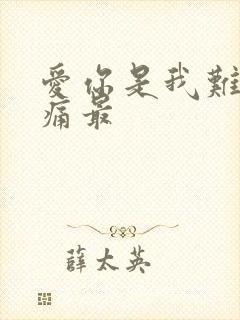 愛你是我難
痛最
薛太英